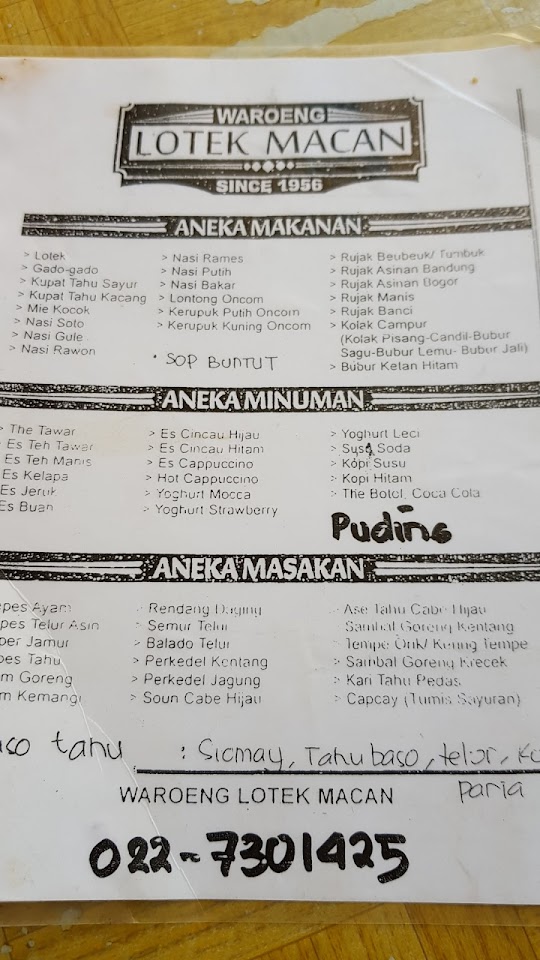 WAROENG
LOTEK MACAN
SINCE 1956
ANEKA MAKANAN
> Lotek
> Gado-gado
> Kupat Tahu Sayur
> Kupat Tahu Kacang
> Mie Kocok
> Nasi Soto
> Nasi Gule
> Nasi Rawon
> Nasi Rames
> Nasi Putih
> Nasi Bakar
> Lontong Oncom
> Kerupuk Putih Oncom
> Kerupuk Kuning Oncom
• SOP BUNTUT
> Rujak Beubeuk/ Tumbuk
> Rujak Asinan Bandung
> Rujak Asinan Bogor
> Rujak Manis
> Rujak Banci
> Kolak Campur
(Kolak Pisang-Candil-Bubur
Sagu-Bubur Lemu- Bubur Jali)
> Bubur Ketan Hitam
ANEKA MINUMAN
> The Tawar
Es Teh Tawar
Es Teh Manis
Es Kelapa
Es Jeruk
Es Buah
> Es Cincau Hijau
> Es Cincau Hitam
> Es Cappuccino
> Hot Cappuccino
> Yoghurt Mocca
> Yoghurt Strawberry
> Yoghurt Leci
> Susu Soda
> Kopi Susu
> Kopi Hitam
> The Botol, Coca Cola
Puding
ANEKA MASAKAN
pes Ayam
pes Telur Asin
per Jamur
pes Tahu
m Goreng
m Kemangi
> Rendang Daging
> Semur Telur
> Balado Telur
> Perkedel Kentang
> Perkedel Jagung
> Soun Cabe Hijau
> Ase Tahu Cabe Hijau
Sambal Goreng Kentang
> Tempe Orik/ Kering Tempe
> Sambal Goreng Krecek
> Kari Tahu Pedas
> Capcay (Tumis Sayuran)
aso tahu : Siomay, Tahu baso, telur, Ko
paria
WAROENG LOTEK MACAN
022-7301425